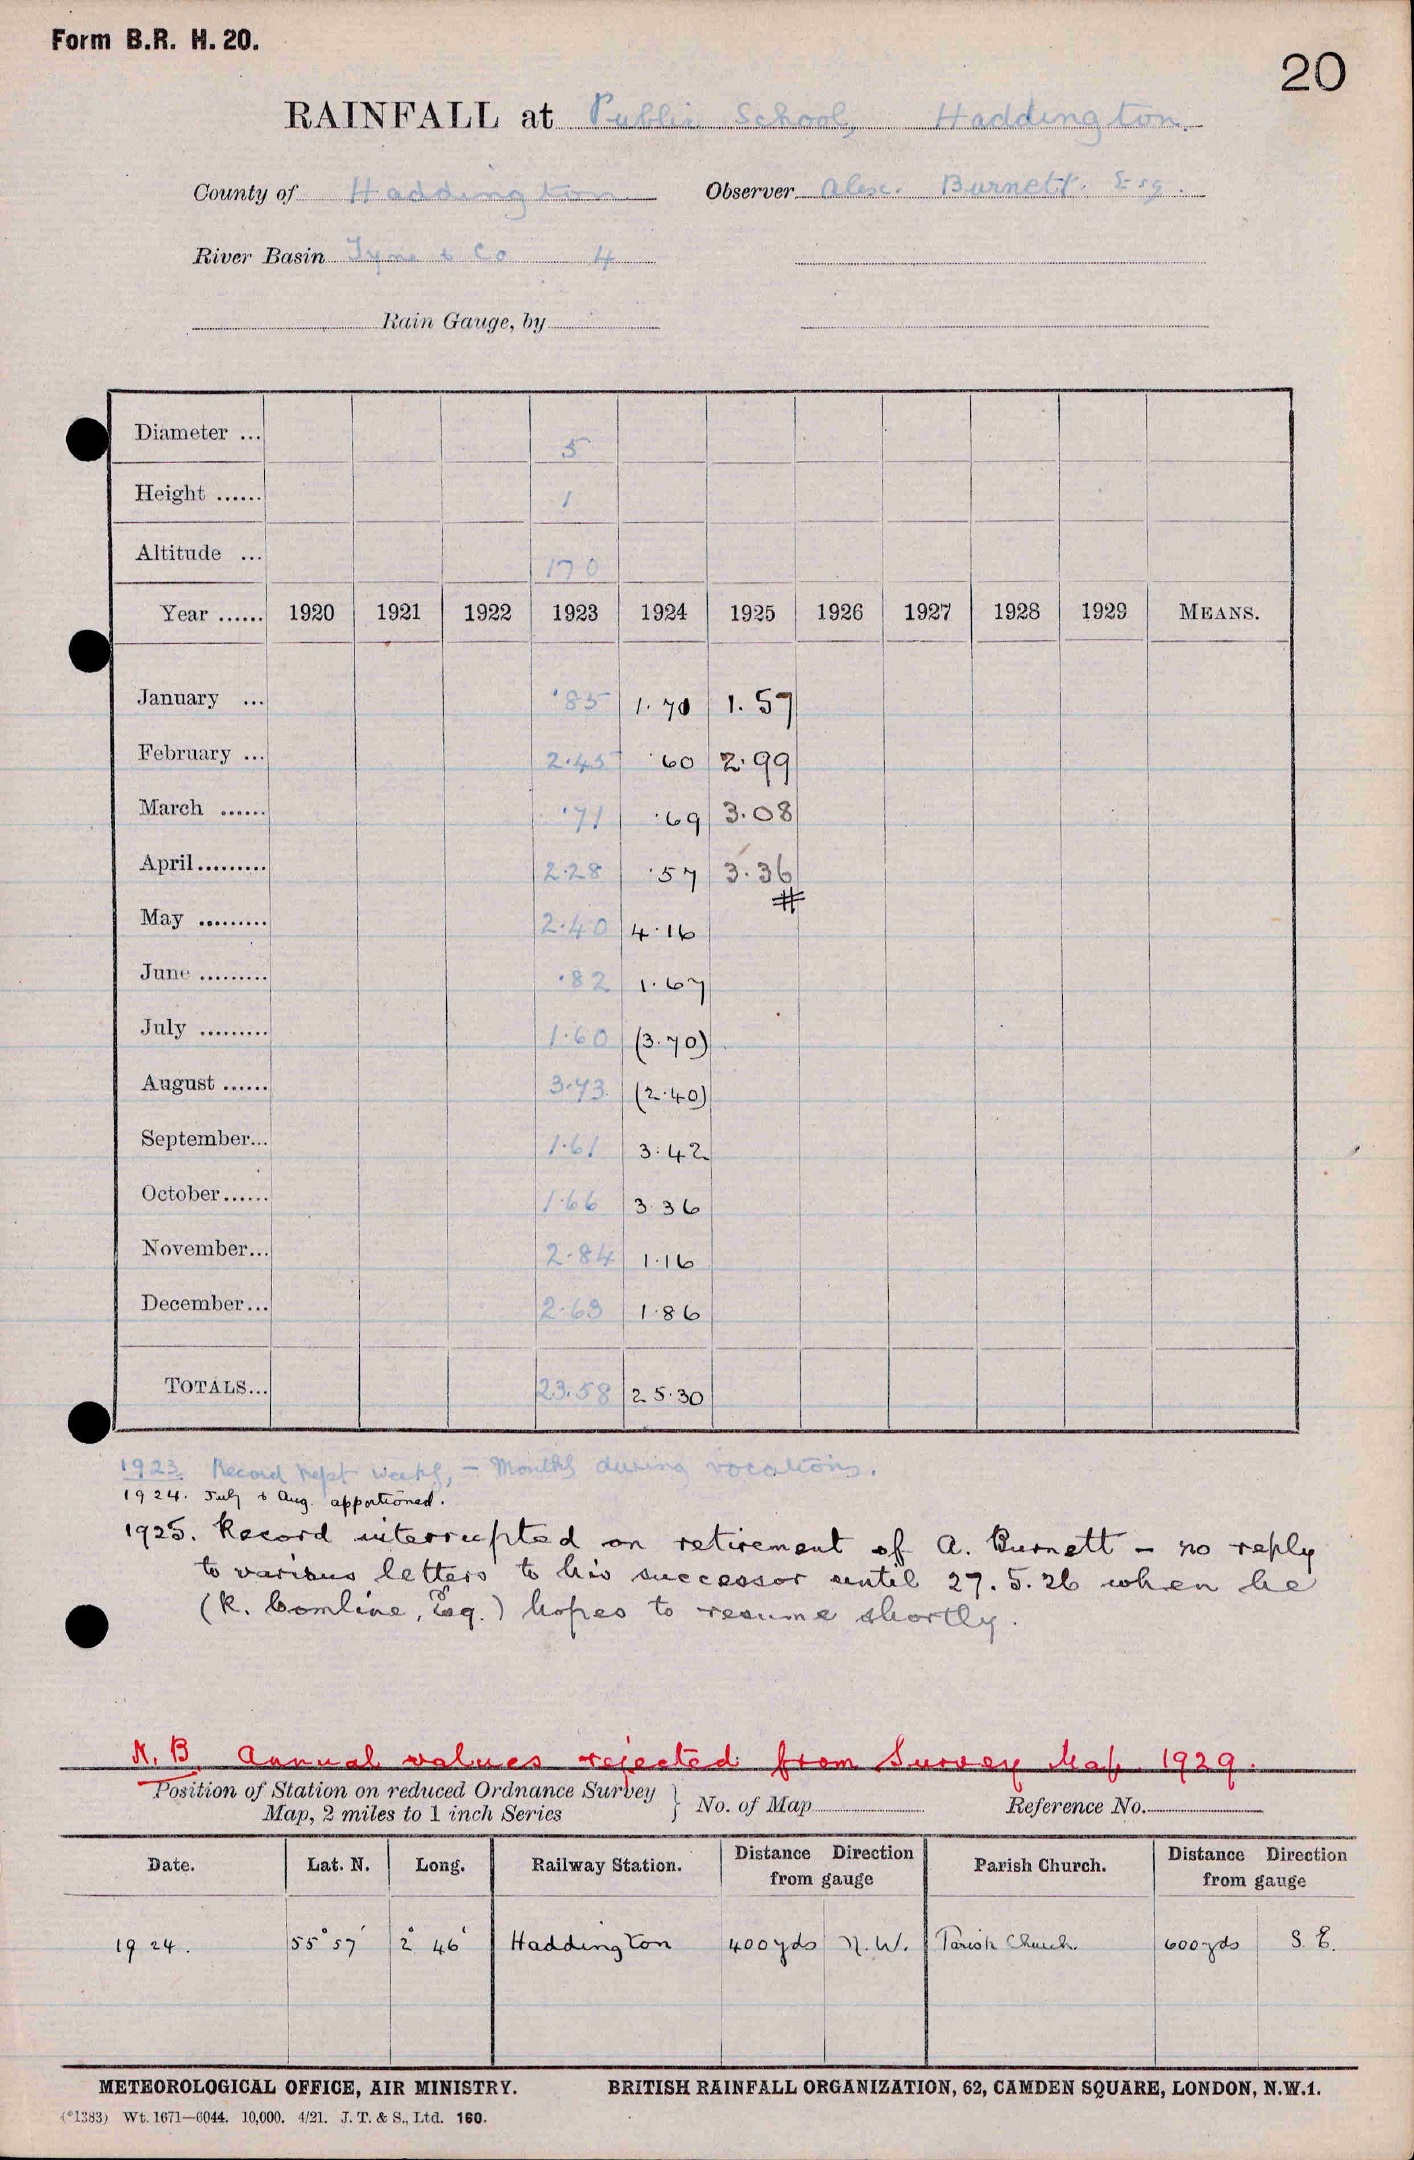 Form B.R. H. 20.
20
RAINFALL at Public School, Haddington.
County of Haddington Observer Alex. Burnett. Esq.
River Basin Tyne & Co 4
Rain Gauge, by
Diameter ... 5
Height ...... 1
Altitude ... 170
Year ...... 1920 1921 1922 1923 1924 1925 1926 1927 1928 1929 MEANS.
January ... ·85 1.70 1.57
February ... 2.45 ·60 2.99
March ...... ·71 ·69 3.08
April ......... 2.28 ·57 3.36
#
May ......... 2.40 4.16
June ......... ·82 1.67
July ......... 1.60 (3.70)
August ...... 3.73 (2.40)
September... 1.61 3.42
October...... 1.66 3.36
November... 2.84 1.16
December... 2.63 1.86
TOTALS... 23.58 25.30
1923 Record kept weekly, – Monthly during vacations.
1924. July & Aug. apportioned.
1925. Record interrupted on retirement of A. Burnett – no reply
to various letters to his successor until 27.5.26 when he
(R. Comline, Esq.) hopes to resume shortly.
N.B. Annual values rejected from Survey Map 1929.
Position of Station on reduced Ordnance Survey
Map, 2 miles to 1 inch Series } No. of Map Reference No.
Date. Lat. N. Long. Railway Station. Distance Direction from gauge Parish Church. Distance Direction from gauge
1924. 55° 57' 2° 46' Haddington 400yds N.W. Parish Church. 600yds S.E.
METEOROLOGICAL OFFICE, AIR MINISTRY. BRITISH RAINFALL ORGANIZATION, 62, CAMDEN SQUARE, LONDON, N.W.1.
(*1383) Wt. 1671—6044. 10,000. 4/21. J. T. & S., Ltd. 160.